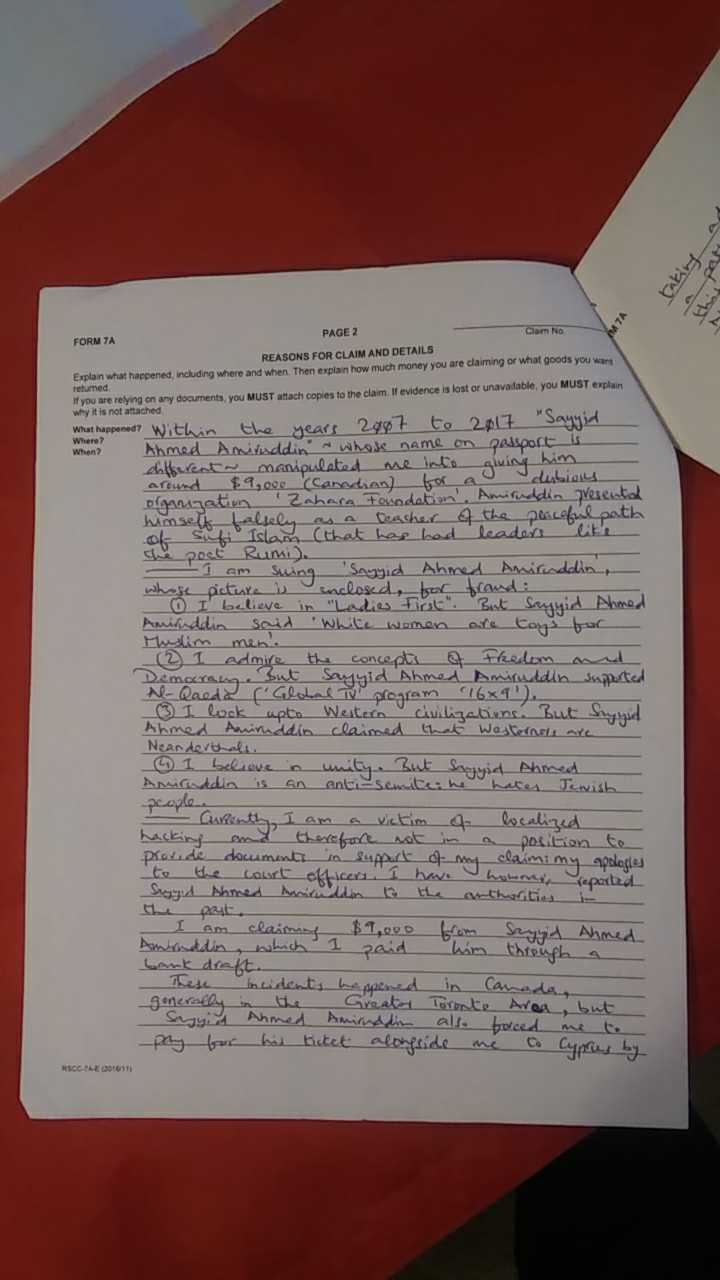 taking
a
FORM 7A
PAGE 2
Claim No.
M 7A
REASONS FOR CLAIM AND DETAILS
Explain what happened, including where and when. Then explain how much money you are claiming or what goods you want
returned.
If you are relying on any documents, you MUST attach copies to the claim. If evidence is lost or unavailable, you MUST explain
why it is not attached.
What happened?
Where?
When?
Within the years 2007 to 2017 "Sayyid
Ahmed Amiruddin" ~ whose name on passport is
different ~ manipulated me into giving him
around $9,000 (Canadian) for a dubious
organization 'Zahara Foundation'. Amiruddin presented
himself falsely as a teacher of the peaceful path
of Sufi Islam (that has had leaders like
the poet Rumi).
I am suing 'Sayyid Ahmed Amiruddin',
whose picture is enclosed, for fraud:
① I believe in "Ladies First". But Sayyid Ahmed
Amiruddin said 'White women are toys for
Muslim men'.
② I admire the concepts of Freedom and
Democracy. But Sayyid Ahmed Amiruddin supported
Al-Qaeda ('Global TV' program '16x9').
③ I look upto Western civilizations. But Sayyid
Ahmed Amiruddin claimed that Westerners are
Neanderthals.
④ I believe in unity. But Sayyid Ahmed
Amiruddin is an anti-semite: he hates Jewish
people.
Currently, I am a victim of localized
hacking and therefore not in a position to
provide documents in support of my claim: my apologies
to the court officers. I have however, reported
Sayyid Ahmed Amiruddin to the authorities in
the past.
I am claiming $9,000 from Sayyid Ahmed
Amiruddin, which I paid him through a
bank draft.
These incidents happened in Canada,
generally in the Greater Toronto Area, but
Sayyid Ahmed Amiruddin also forced me to
pay for his ticket alongside me to Cyprus by
RSCC-7A-E (2016/11)